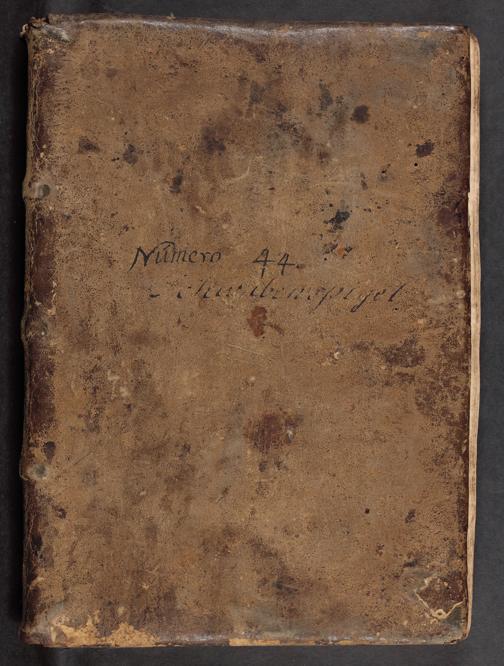 Numero 44.
Schwabenspigel